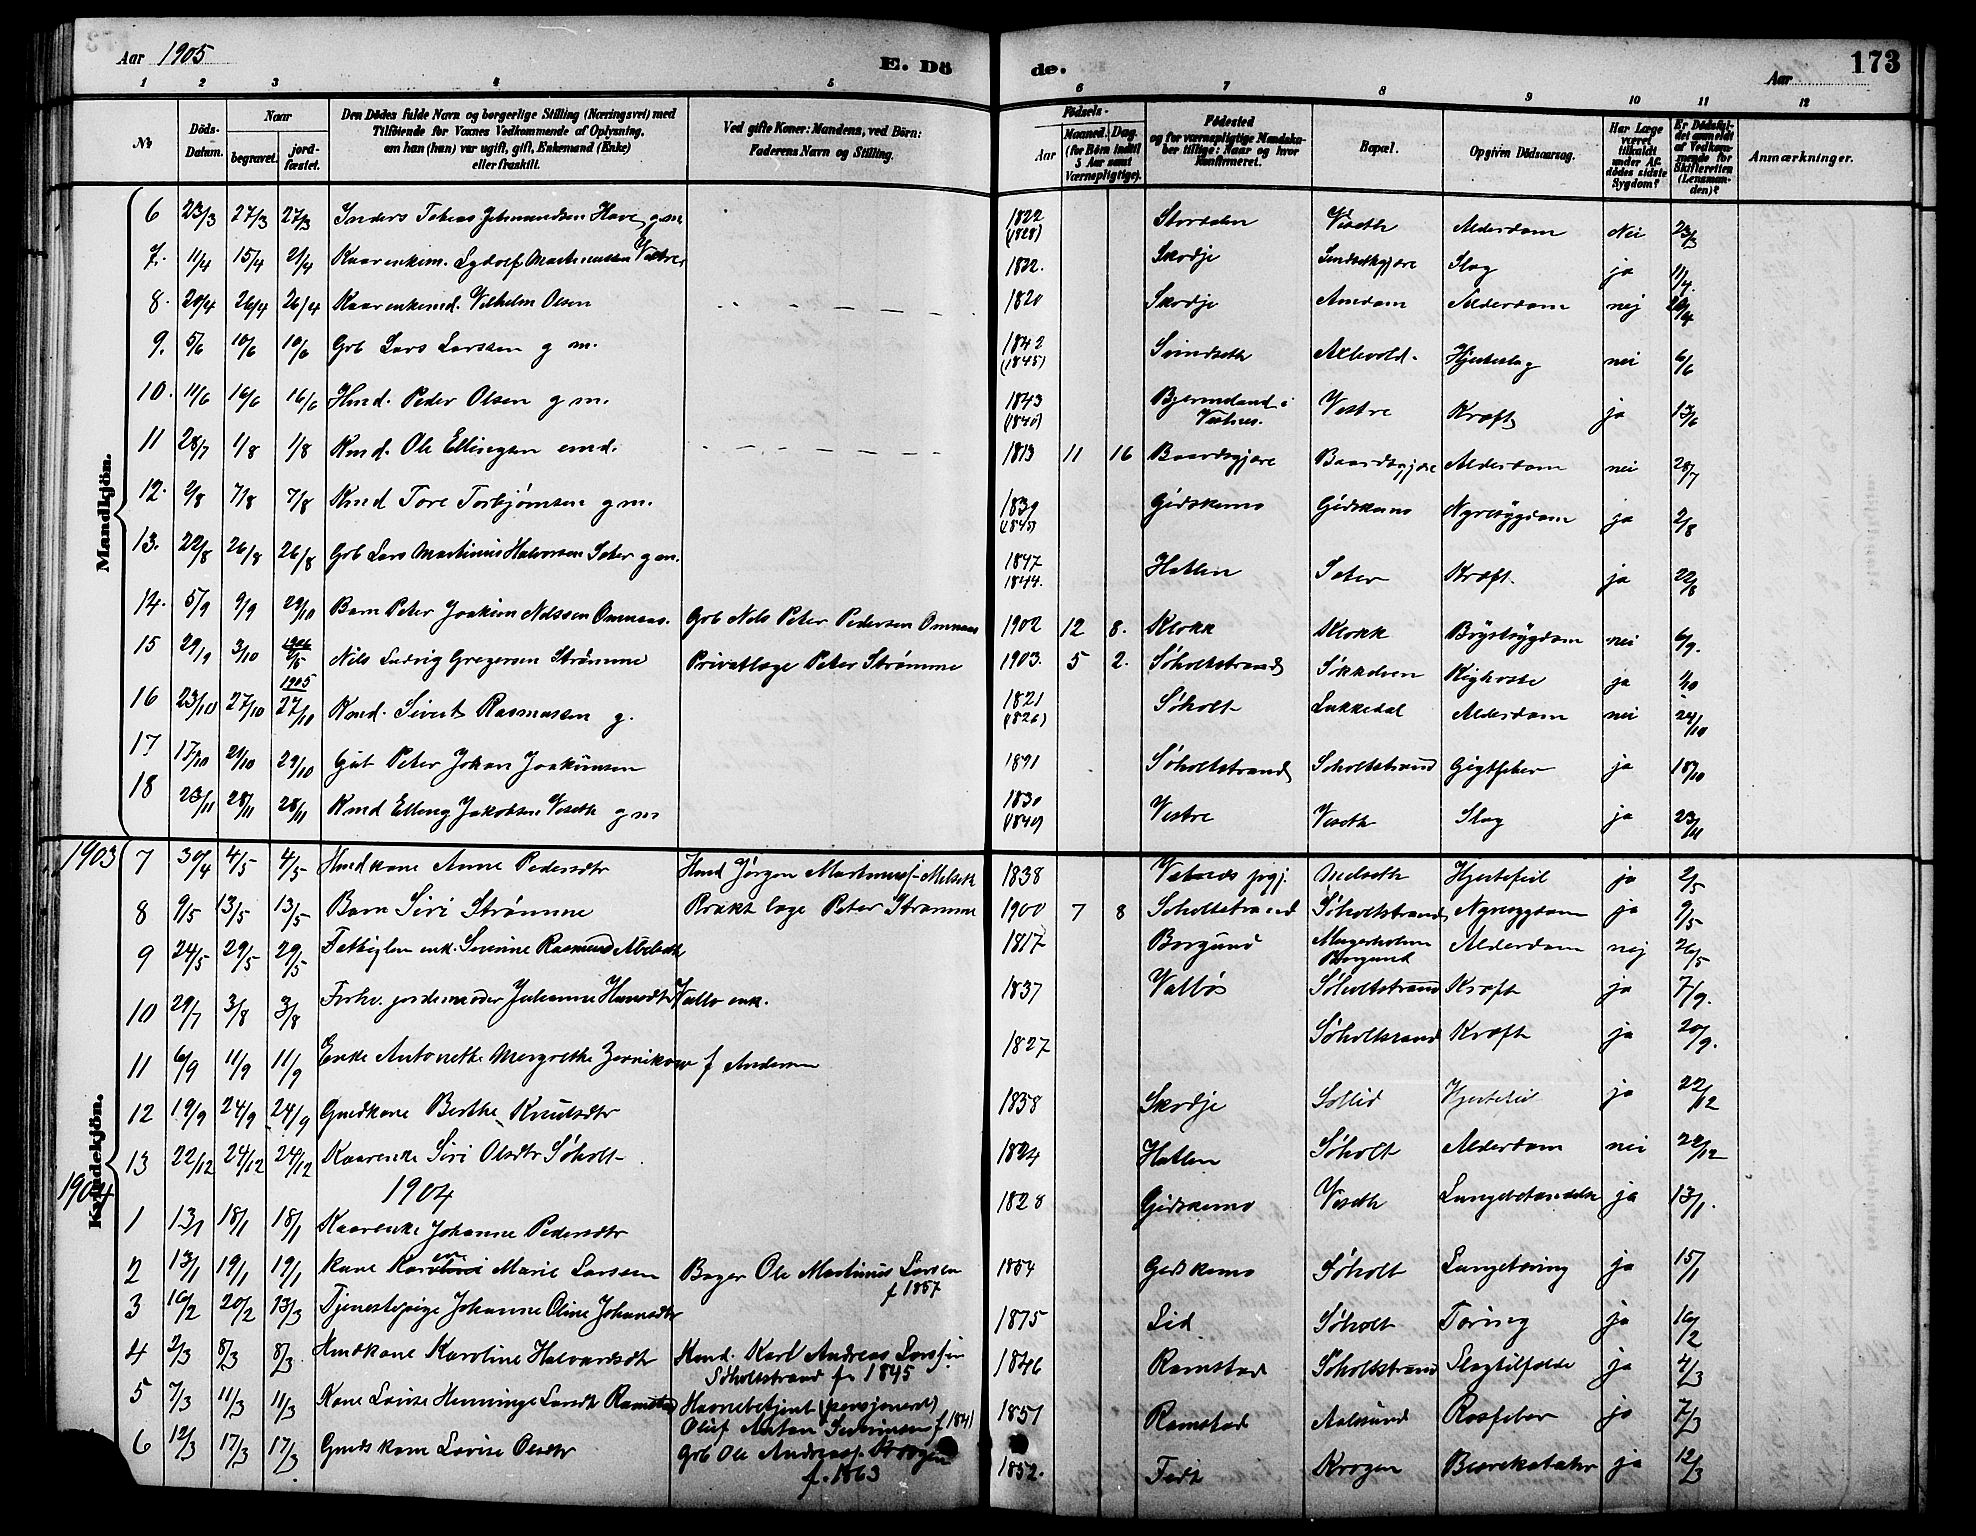 Aar 1905
E. Dö
de.
Aar
173
1 2 3 4 5 6 7 8 9 10 11 12
№
Döds-Datum.
Naar
begravet.
jord-fæstet.
Den Dödes fulde Navn og borgerlige Stilling (Næringsvei) med
Tilföiende for Voxnes Vedkommende af Oplysning,
om han (hun) var ugift, gift, Enkemand (Enke)
eller fraskilt.
Ved gifte Koner: Mandens, ved Börn:
Faderens Navn og Stilling.
Födsels-
Aar
Maaned. Dag.
(for Börn indtil
5 Aar samt
Værnepligtige).
Födested
og for værnepligtige Mandska-
ber tillige: Naar og hvor
konfirmeret.
Bopæl.
Opgiven Dödsaarsag.
Har Læge
været
tilkaldt
under Af-
dödes sidste
Sygdom?
Er Dödsfal-
det anmeldt
af Vedkom-
mende for
Skifteretten
(Lensman-
den)?
Anmærkninger.
Mandkjön.
6 23/3 27/3 27/3 Tobias g m. 1822 (1828) Alderdom Nei 23/3
7. 11/4 15/4 21/4 Kaarenkem. Martinussen Vestre 1832. Skodje Slag ja 11/4.
8. 20/4 26/4 26/4 Kaarenkemd. Vilhelm Olsen 1820 Skodje Amdam Alderdom nej 20/4
9. 5/6 10/6 10/6 Grb Lars Larssen g m. 1842 (1845) Hjerteslag nei 6/6
10. 11/6 16/6 16/6 Hmd. Peder Olsen g m. 1843 (1840) i Vestnes. Vestre Kræft ja 13/6
11 28/7 1/8 1/8 Kmd. Ole Ellingsen emd. 1813 11 16 Baardsgjære Baardsgjære Alderdom nei 28/7
12. 2/8 7/8 7/8 Kmd Tore Torbjørnsen g m. 1839 (1845) Gidskemo Gidskemo Nyresygdom ja 2/8
13. 22/8 26/8 26/8 Grb Lars Martinus Halvorsen Sæter g m. 1847 1844. Hatlen Sæter Kræft. ja 22/8
14. 5/9 9/9 29/10 Barn Peter Joakim Nilssen Omenaas. Grb Nils Peter Pedersen Omenaas 1902 12 8. Klokk Klokk Brystsygdom nei 6/9.
15 29/9 3/10 1906 Nils Ludvig Gregersen Strømme Privatlæge Peter Strømme 1903. 5 2. Søholtstrand Søkkelven Kighoste ja
16 23/10 27/10 1905 27/10 Kmd. Sivert Rasmussen g. 1821 (1826) Søholt Lukkedal Alderdom nei 24/10
17 17/10 21/10 29/10 Gut Peter Johan Joakimsen 1891 Søholtstrand Søholtstrand Gigtfeber ja 18/10
18 23/11 28/11 28/11 Kmd Elling Jakobsen Viseth g m 1830 (1840) Vestre Viseth Slag ja 23/11
Kvindekjön.
1903 7 30/4 4/5 4/5 Hmdkone Anne Pedersdtr Hmd Jørgen 1838 Vatnes pgj. Hjertefeil ja 2/5
8 9/5 13/5 13/5 Barn Siri Strømme Prakt læge Peter Strømme 1900 7 8 Søholtstrand Søholtstrand Nyresygdom ja 9/5
9 24/5 29/5 29/5 Fattiglem enk. Severine 1817 Borgund Magerholm Borgund Alderdom nej 26/5
10 29/7 3/8 3/8 Forhv. jordemoder Julianne Vallø enk. 1837 Valbøs Søholtstrand Kræft ja 7/9.
11 6/9 11/9 11/9 Enke Antonethe Margrethe f Andersen 1827 Søholtstrand Kræft ja 20/9.
12 19/9 24/9 24/9 Gmdkone Berthe Knutsdtr 1838 Skodje Sollid Hjertefeil ja 22/12
13 22/12 24/12 24/12 Kaarenke Siri Olsdtr Søholt 1824 Hatlen Søholt Alderdom nei 22/12
1904
1904
1 13/1 18/1 18/1 Kaarenke Johanne Pedersdtr 1828 Gidskemo Viseth Lungebetændelse ja 13/1.
2 13/1 19/1 19/1 Kone Marie Larssen Bager Ole Martinus Larsen f 1857 1854 Gidskemo Søholt Lungetæring ja 15/1
3 16/2 20/2 13/3 Tjenestepige Johanne Oline Johansdtr 1875 Lid Søholt Tæring ja 16/2
4 2/3 8/3 8/3 Hmdkone Karoline Halvardsdtr Hmd. Karl Andreas Larssen Søholtstrand f. 1845 1846 Ramstad Søholtstrand Slagtilfælde ja 4/3
5 7/3 11/3 11/3 Kone Lovise Henninge Larsdtr Ramstad Havnebetjent (pensjoneret) Oluf Anton f 1841 1851 Ramstad Aalesund Rosfeber ja 7/3
6 12/3 17/3 17/3 Gmdskone Lovise Olsdtr Grb Ole Andreas Krogen f. 1863 1852. Fedt Krogen ja 12/3